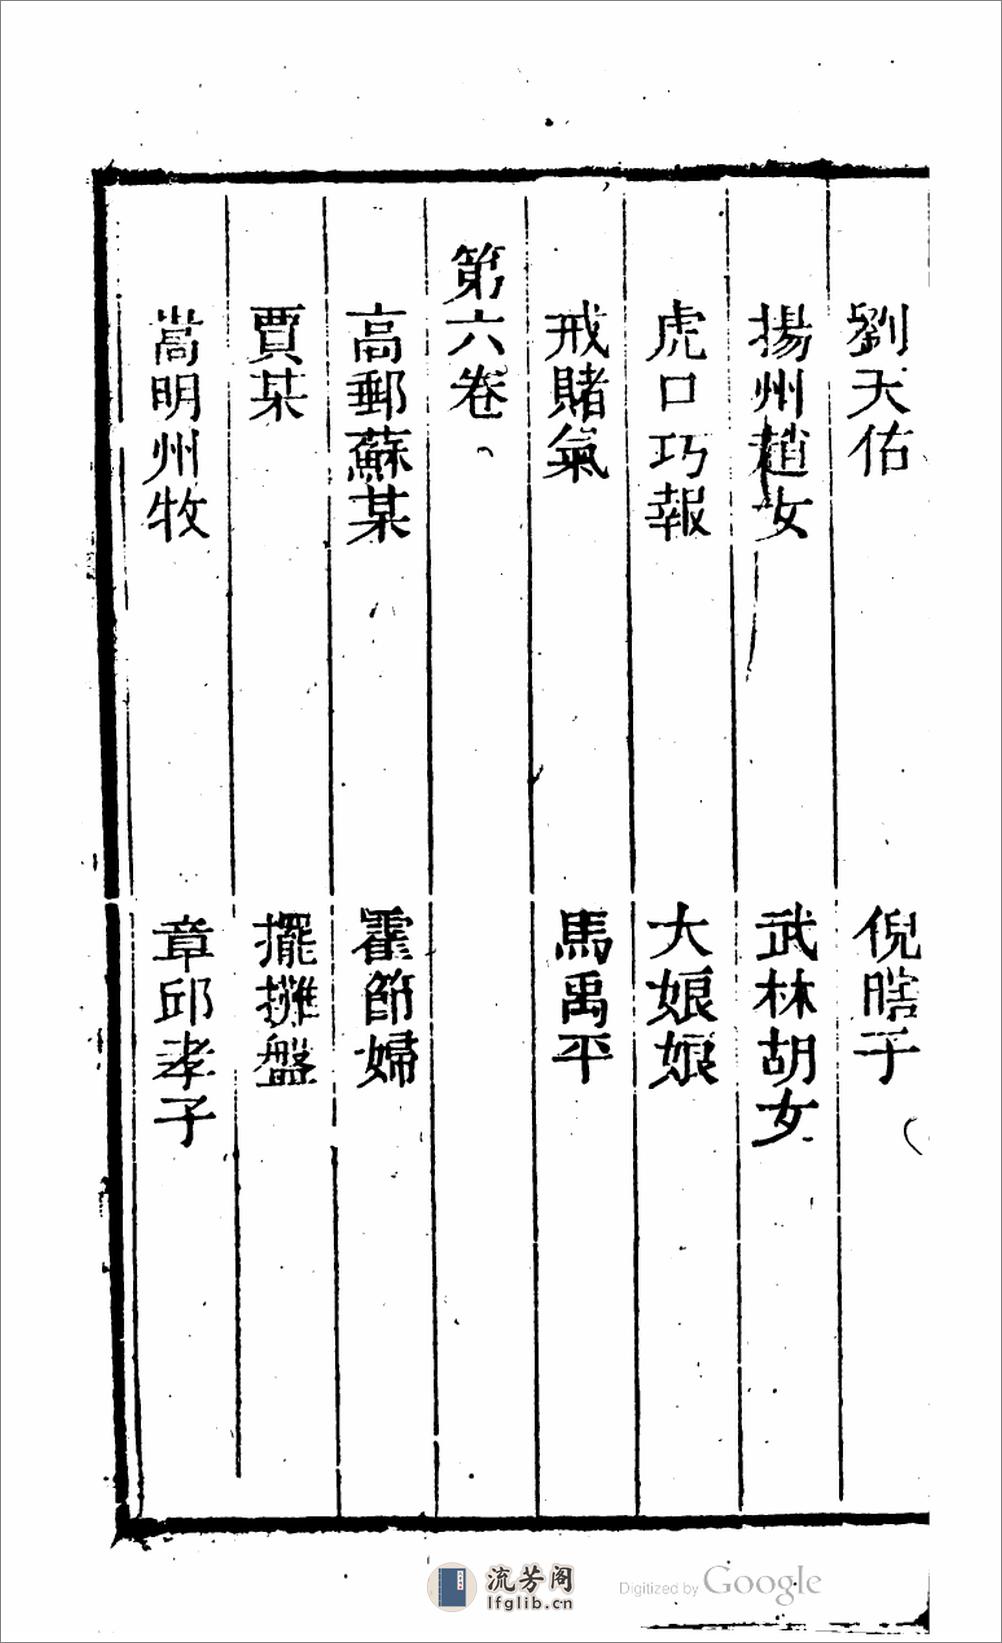 劉天佑　倪瞎子
揚州趙女　武林胡女
虎口巧報　大娘娘
戒賭氣　馬禹平
第六卷
高郵蘇某　霍節婦
賈某　擺攤盤
嵩明州牧　章邱孝子
流芳阁
lfglib.cn
Digitized by Google